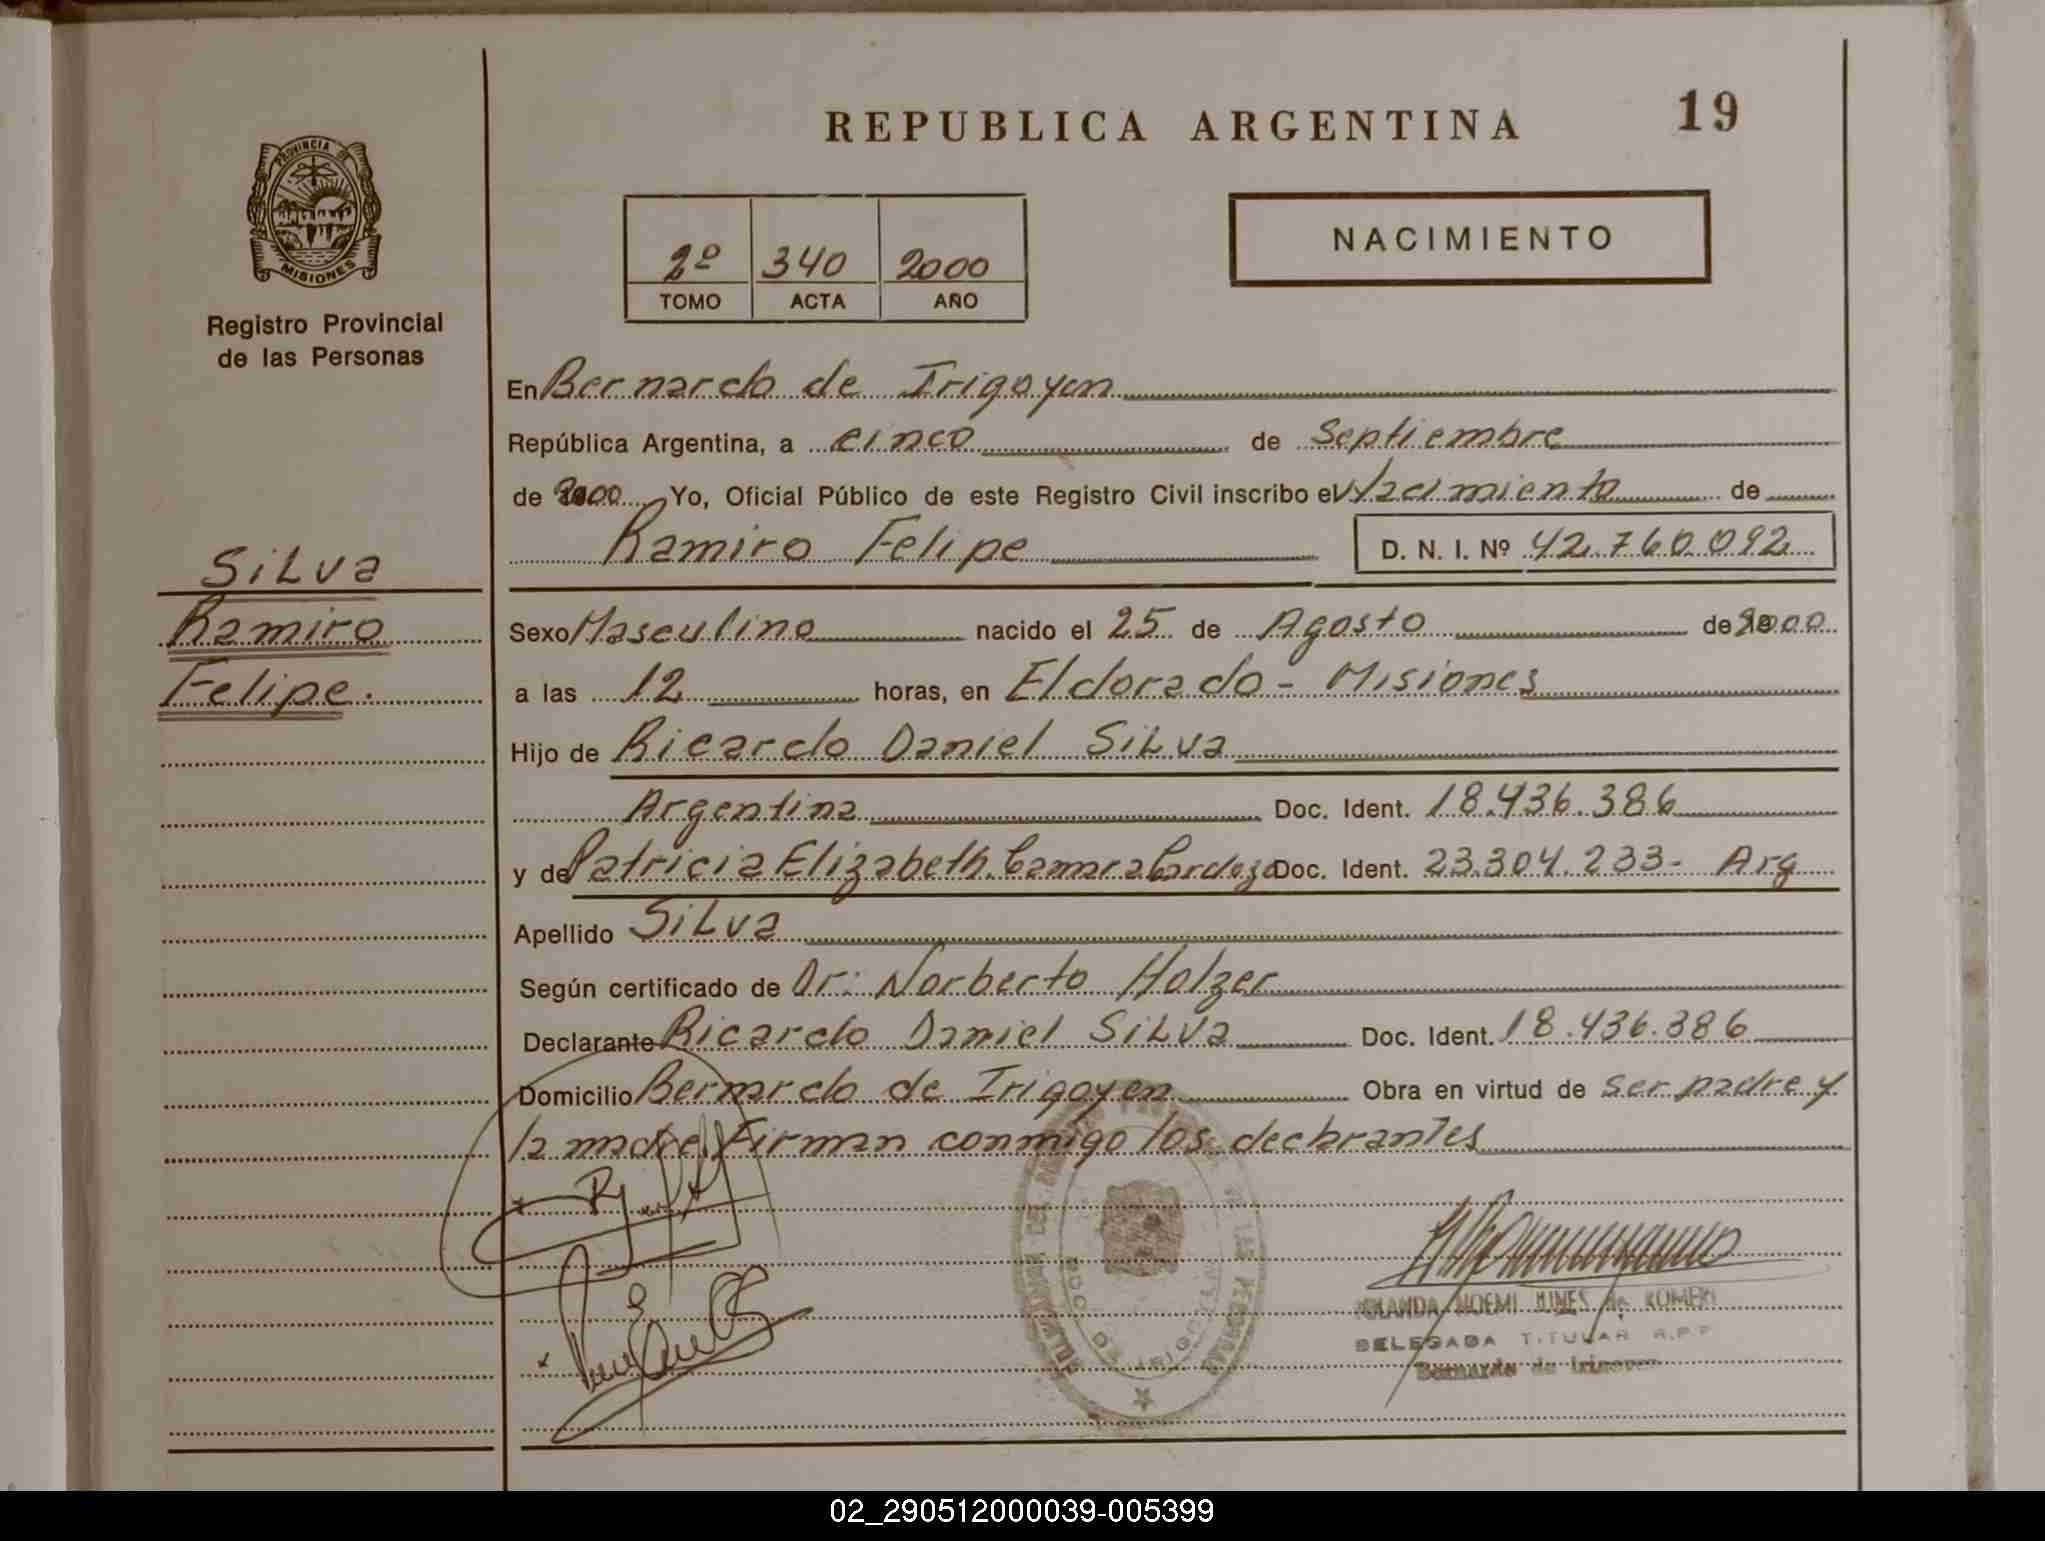 REPUBLICA ARGENTINA 19
PROVINCIA DE
MISIONES
Registro Provincial
de las Personas
2º 340 2000
TOMO ACTA AÑO
NACIMIENTO
En Bernardo de Irigoyen
República Argentina, a cinco de Septiembre
de 2000 Yo, Oficial Público de este Registro Civil inscribo el Nacimiento de
Ramiro Felipe D. N. I. Nº 42.760.092
Silva
Ramiro
Felipe.
Sexo Masculino nacido el 25 de Agosto de 2000
a las 12 horas, en Eldorado - Misiones
Hijo de Ricardo Daniel Silva
Argentina Doc. Ident. 18.436.386
y de Patricia Elizabeth Camara Cardozo Doc. Ident. 23.304.233- Arg
Apellido Silva
Según certificado de Dr: Norberto Holzer
Declarante Ricardo Daniel Silva Doc. Ident. 18.436.386
Domicilio Bernardo de Irigoyen Obra en virtud de ser padre y
la madre. Firman conmigo los declarantes
NOEMI de ROMERO
DELEGADA TITULAR R.P.P
Bernardo de Irigoyen
02_290512000039-005399